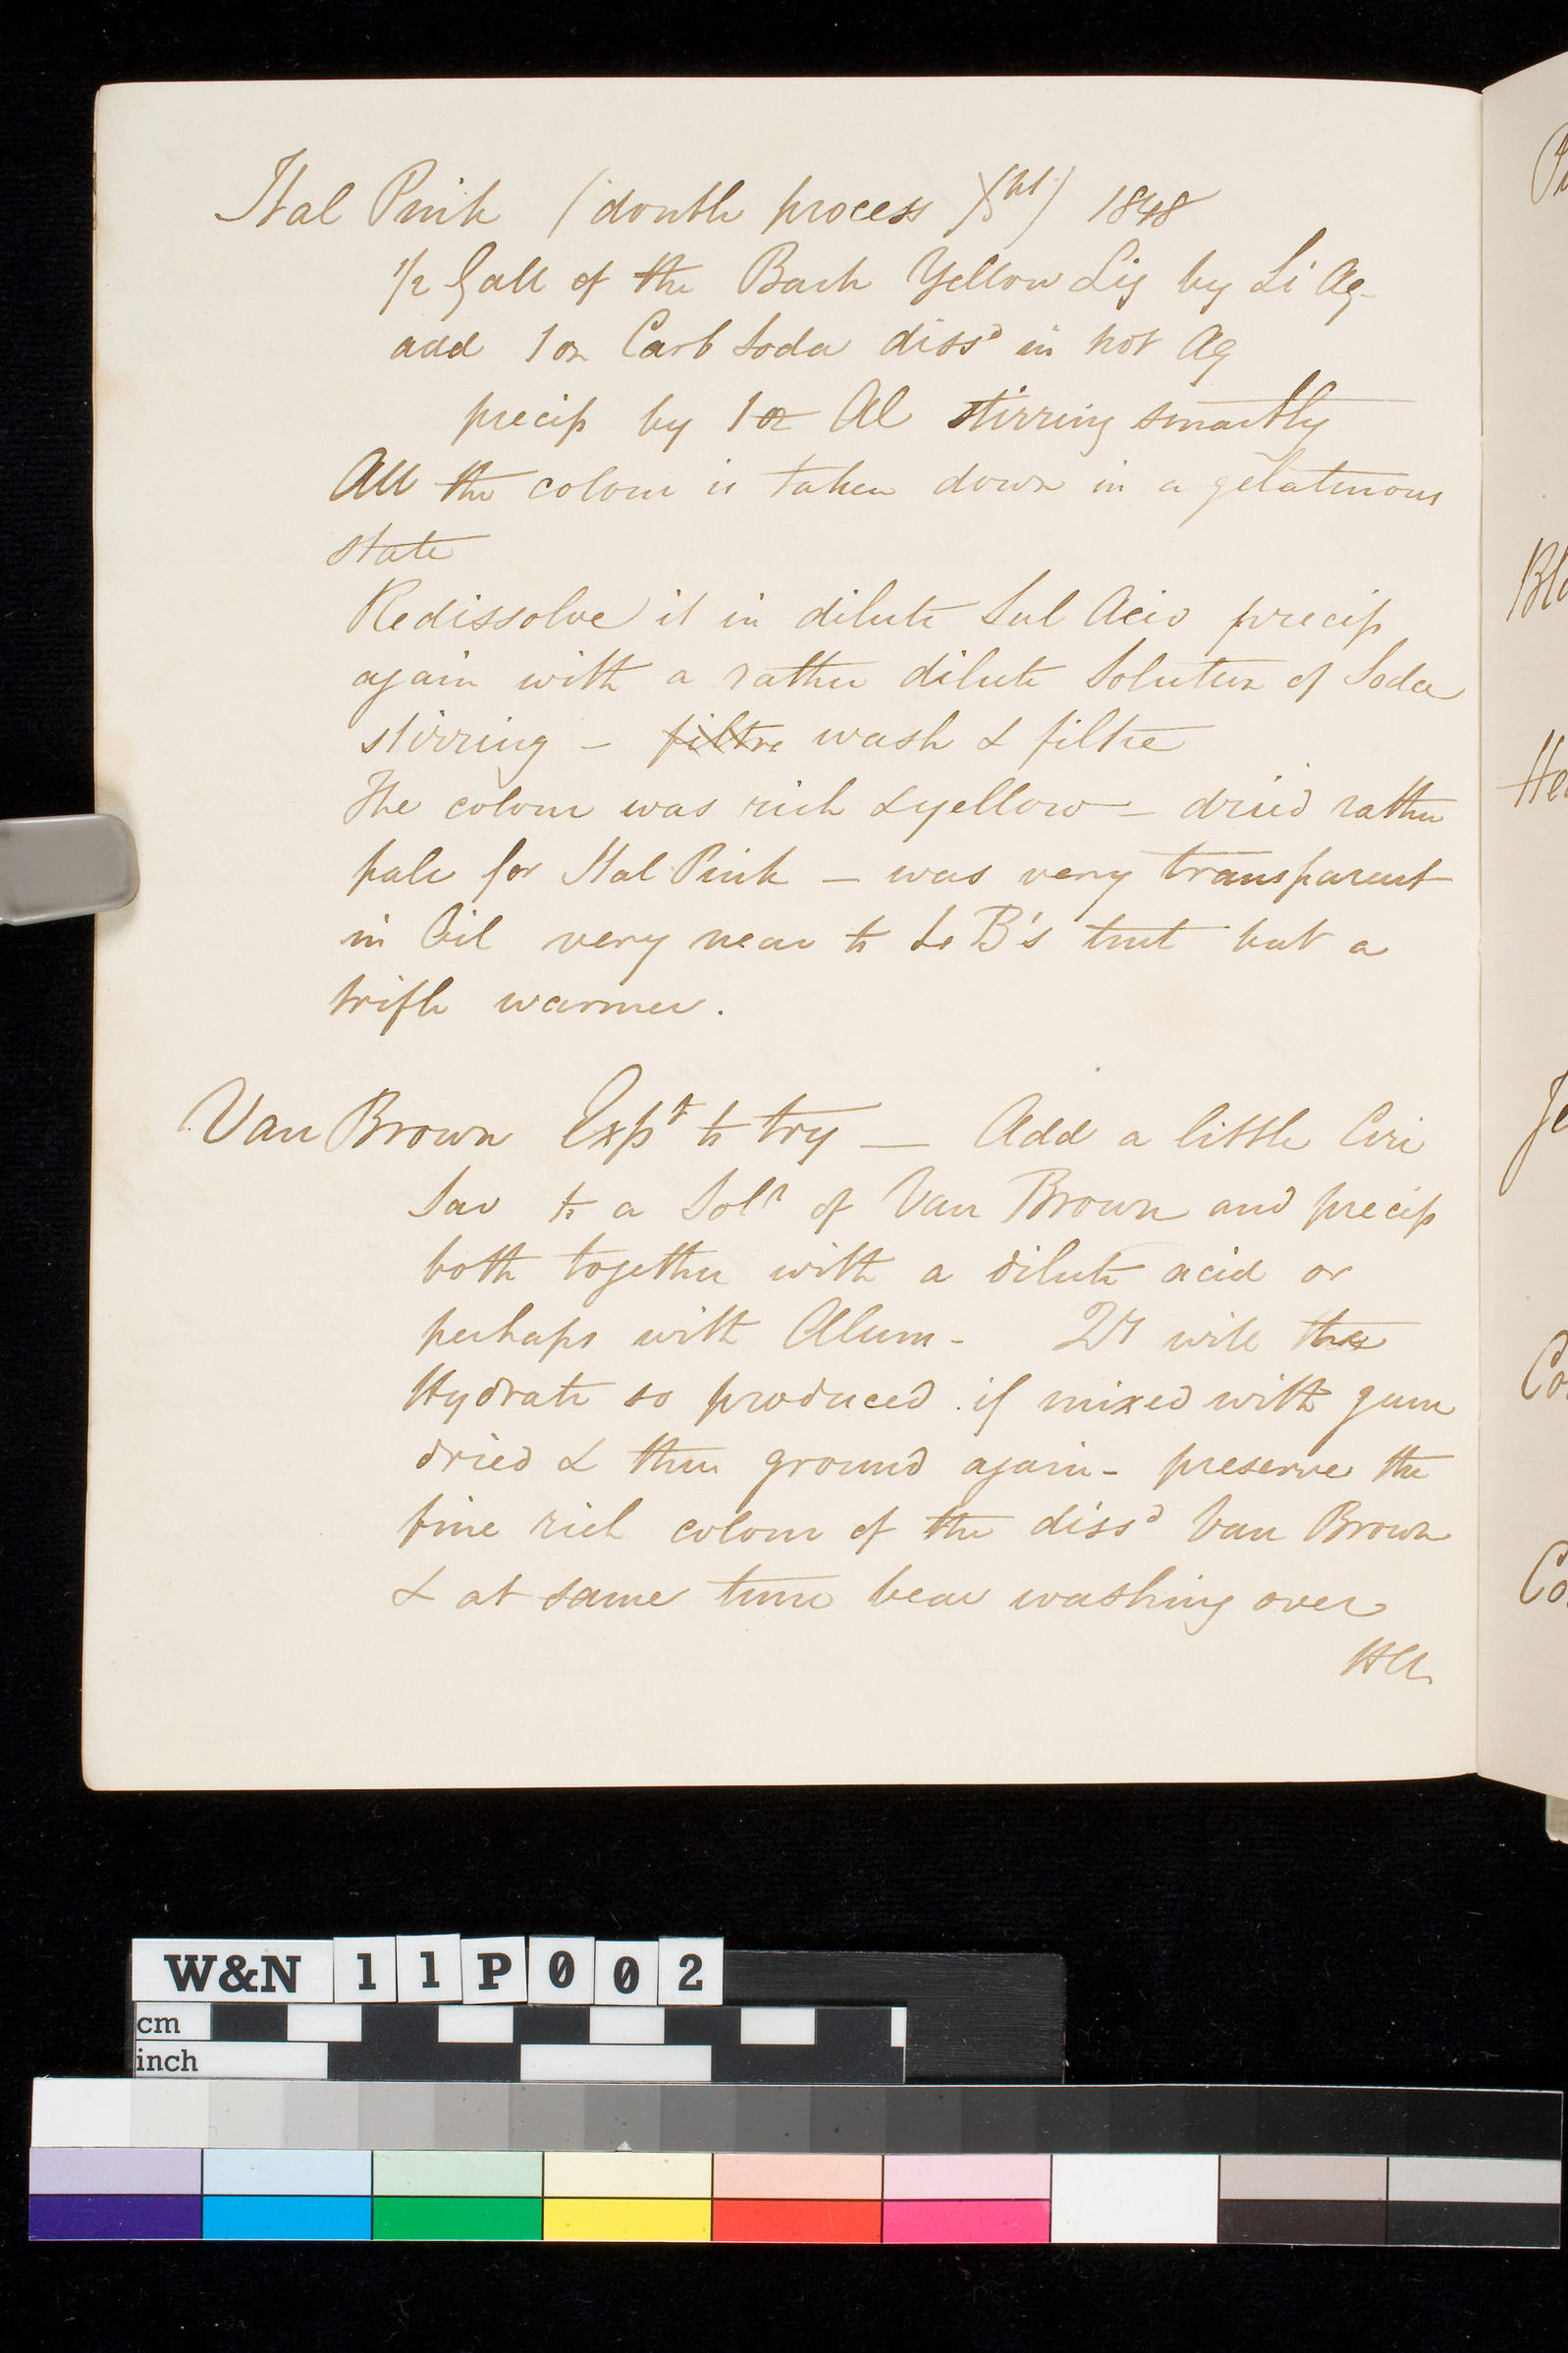 Ital Pink (double process 1848
1/2 Gall of the Bark Yellow Liq by Li Aq-
add 1 oz Carb Soda dissd in hot Aq
precip by 1 oz Al stirring smartly
All the colour is taken down in a gelatinous
state
Redissolve it in dilute Sul Acid precip
again with a rather dilute Solution of Soda
stirring - filtre wash & filtre
The colour was rich & yellow - dried rather
pale for Ital Pink - was very transparent
in Oil very near to Le B's tint but a
trifle warmer.
Van Brown Expt to try - Add a little Curi
Sav to a Soln of Van Brown and precip
both together with a dilute acid or
perhaps with Alum - Qy will the
Hydrate so produced if mixed with gum
dried & then ground again - preserve the
fine rich colour of the dissd Van Brown
& at same time bear washing over
W&N 11P002
cm
inch
Co
Co